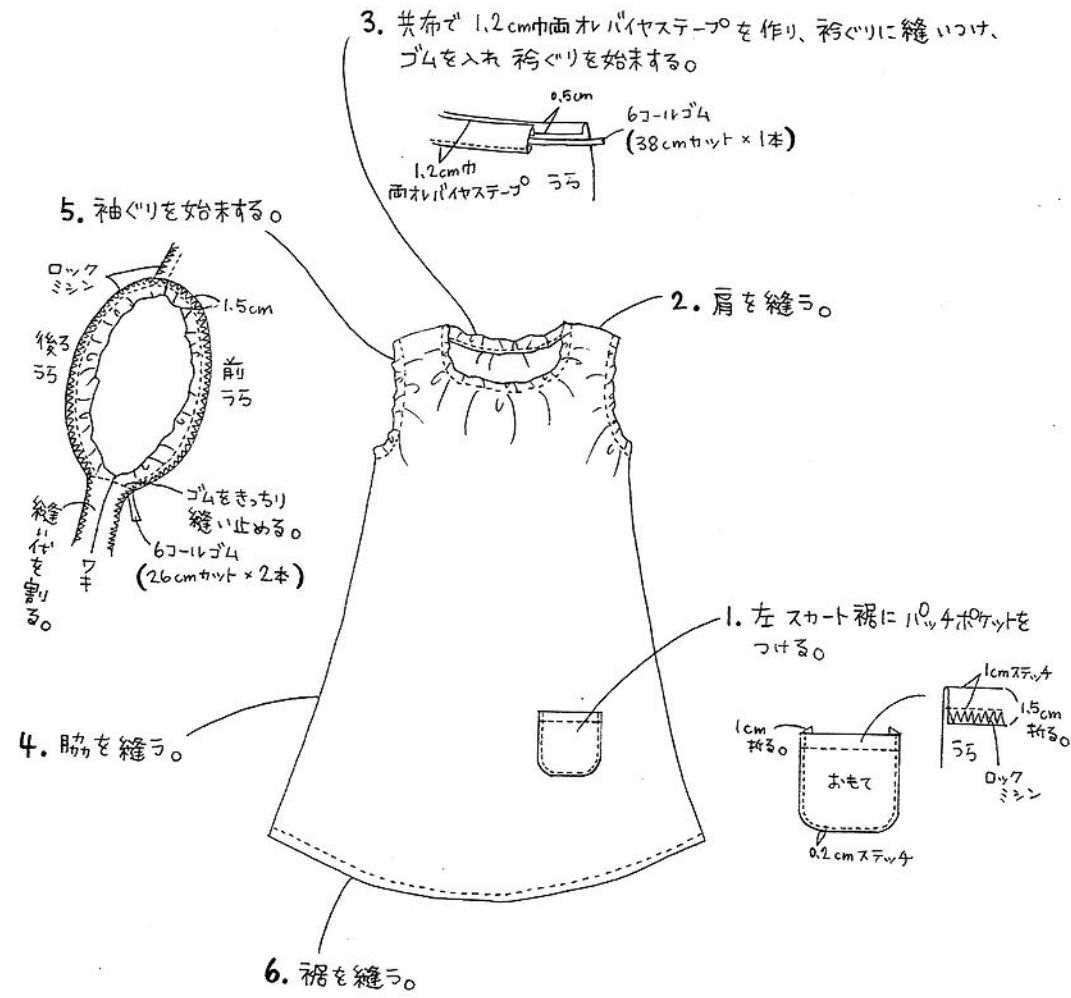 3. 共布で 1.2cm巾両オレバイヤステープを作り、衿ぐりに縫いつけ、
ゴムを入れ 衿ぐりを始末する。
0.5cm
6コールゴム
(38cmカット×1本)
1.2cm巾
両オレバイヤステープ
うら
5. 袖ぐりを始末する。
ロック
ミシン
1.5cm
後ろ
うら
前
うら
ゴムをきっちり
縫い止める。
6コールゴム
(26cmカット×2本)
縫い代を割る。
ワキ
2. 肩を縫う。
1. 左 スカート裾に パッチポケットを
つける。
1cmステッチ
1.5cm
折る。
うら
ロック
ミシン
1cm
折る。
おもて
0.2cmステッチ
4. 脇を縫う。
6. 裾を縫う。